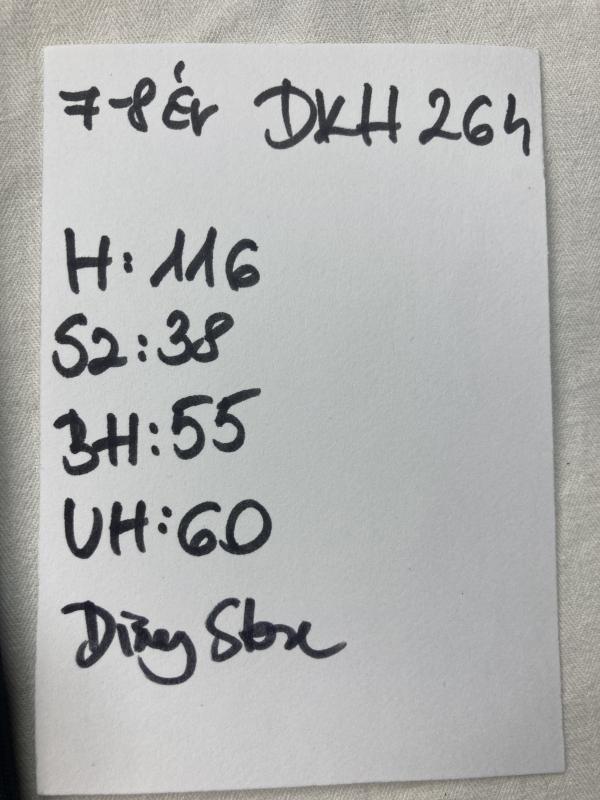 7-8 Év DKH 26h
H: 116
S2: 38
BH: 55
UH: 60
Disney Store